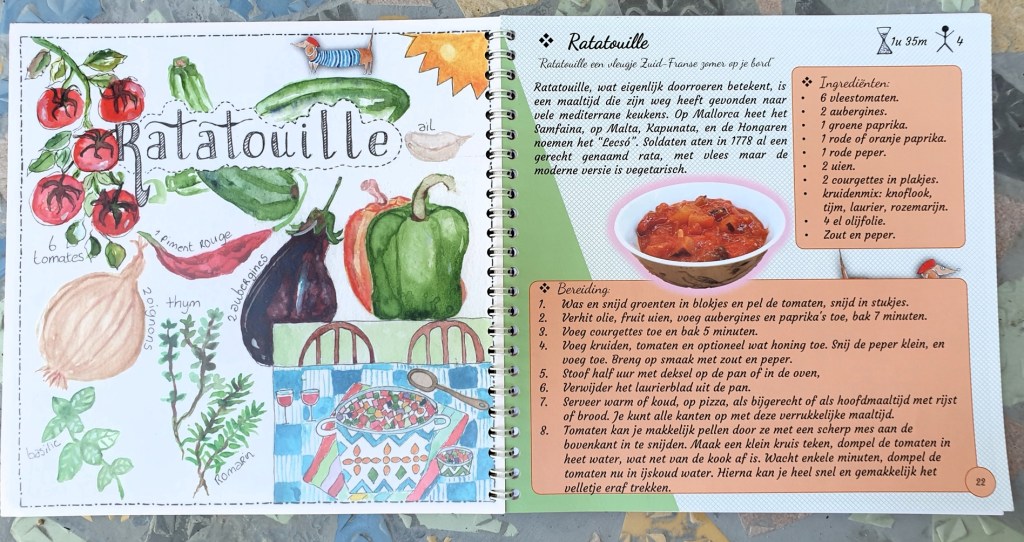 Ratatouille
ail
6
tomates
1 Piment Rouge
2 oignons
thym
2 aubergines
basilic
Romarin
❖ Ratatouille
1u 35m
4
"Ratatouille een vleugje Zuid-Franse zomer op je bord"
Ratatouille, wat eigenlijk doorroeren betekent, is
een maaltijd die zijn weg heeft gevonden naar
vele mediterrane keukens. Op Mallorca heet het
Samfaina, op Malta, Kapunata, en de Hongaren
noemen het "Lecsó". Soldaten aten in 1778 al een
gerecht genaamd rata, met vlees maar de
moderne versie is vegetarisch.
❖ Ingrediënten:
• 6 vleestomaten.
• 2 aubergines.
• 1 groene paprika.
• 1 rode of oranje paprika.
• 1 rode peper.
• 2 uien.
• 2 courgettes in plakjes.
• kruidenmix: knoflook,
tijm, laurier, rozemarijn.
• 4 el olijfolie.
• Zout en peper.
❖ Bereiding:
1. Was en snijd groenten in blokjes en pel de tomaten, snijd in stukjes.
2. Verhit olie, fruit uien, voeg aubergines en paprika's toe, bak 7 minuten.
3. Voeg courgettes toe en bak 5 minuten.
4. Voeg kruiden, tomaten en optioneel wat honing toe. Snij de peper klein, en
voeg toe. Breng op smaak met zout en peper.
5. Stoof half uur met deksel op de pan of in de oven,
6. Verwijder het laurierblad uit de pan.
7. Serveer warm of koud, op pizza, als bijgerecht of als hoofdmaaltijd met rijst
of brood. Je kunt alle kanten op met deze verrukkelijke maaltijd.
8. Tomaten kan je makkelijk pellen door ze met een scherp mes aan de
bovenkant in te snijden. Maak een klein kruis teken, dompel de tomaten in
heet water, wat net van de kook af is. Wacht enkele minuten, dompel de
tomaten nu in ijskoud water. Hierna kan je heel snel en gemakkelijk het
velletje eraf trekken.
22